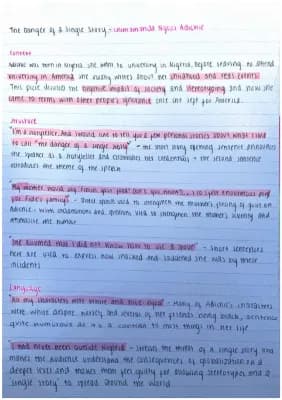 The Danger of a Single Story - Chimamanda Ngozi Adichie
Context
Adichie was born in Nigeria. She went to university in Nigeria, before leaving to attend
university in America. She mainly writes about her childhood and real events.
This piece divided the cognitive model of society and stereotyping and how she
came to terms with other people's ignorance once she left for America.
Structure
"I'm a storyteller. And I would like to tell you a few personal stories about what I like
to call "the danger of a single story" - the short story opening sentence announces
the speaker as a storyteller and establishes her credentials - the second sentence
introduces the theme of the speech
My mother would say, "Finish your food! Don't you know?
Fide's family" - Direct speech used to strengthen the mother's
with exclamations and
emphasise the humour
"She assumed that I did not know how to use a stove" - Short sentences
here are used to express how shocked and saddened she was by these
incidents
Language
"All my characters were white and blue eyed" - Many of Adichie's characters
were white despite her and several of her friends being black, sentence
quite humorous as it is a contrast to most things in her life
"I had never been outside Nigeria" - the of a single story and
makes the audience understand the consequences of globalization on a
deeper level and makes them feel guilty for allowing stereotypes and a
single story to spread around the world